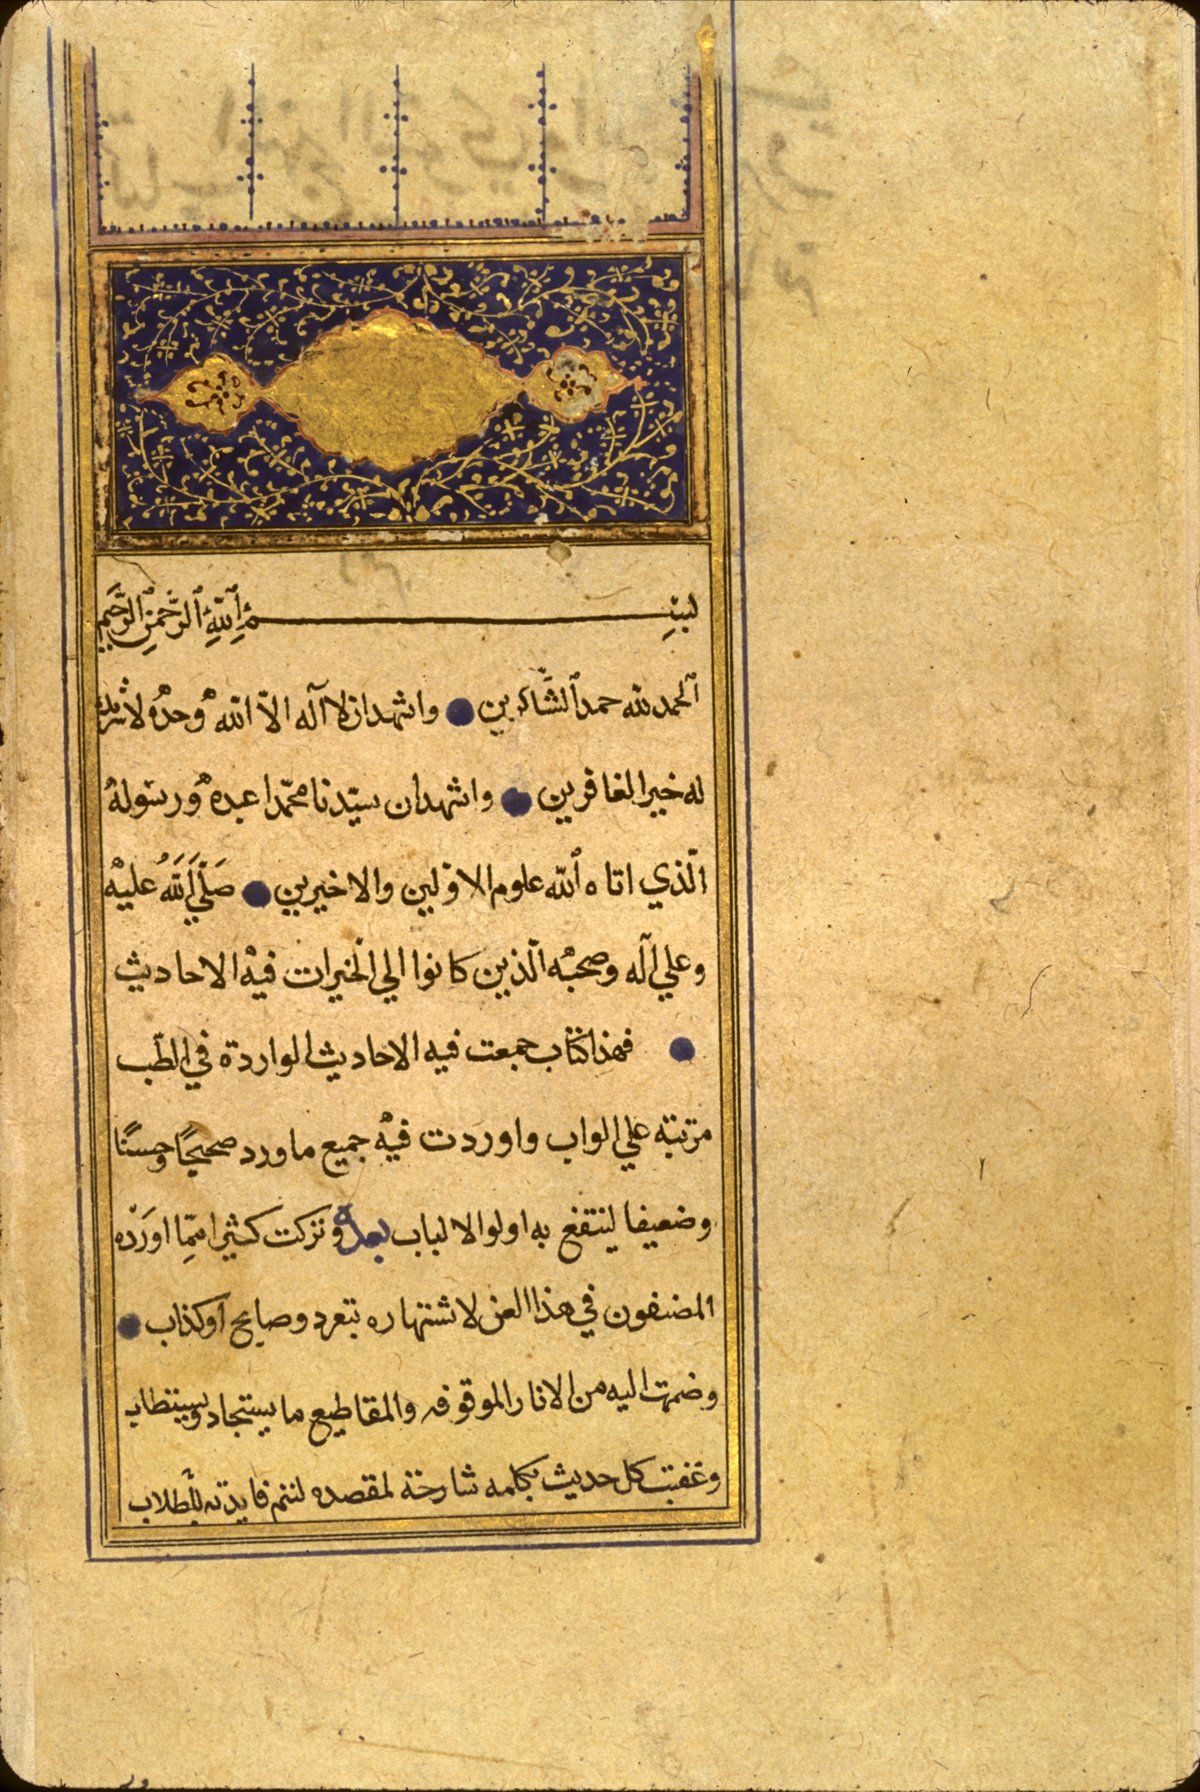 بسم الله الرحمن الرحيم
الحمد لله حمد الشاكرين واشهد ان لا آله الا الله وحده لا شريك
له خير الغافرين واشهد ان سيدنا محمدا عبده ورسوله
الذي اتاه الله علوم الاولين والاخيرين صلي الله عليه
وعلي آله وصحبه الذين كانوا الي الخيرات فيه الاحاديث
فهذا كتاب جمعت فيه الاحاديث الواردة في الطب
مرتبته علي الواب واوردت فيه جميع ما ورد صحيحًا وحسنًا
وضعيفا لينتفع به اولوا الالباب بعده وتركت كثيرا مما اورده
المصنفون في هذا الفن لاشتهاره بتفرد وضايح او كذاب
وضمت اليه من الاثار الموقوفه والمقاطيع ما يستجاد ويستطاب
وعقبت كل حديث بكلمه شارحة لمقصده لتتم فايدته للطلاب